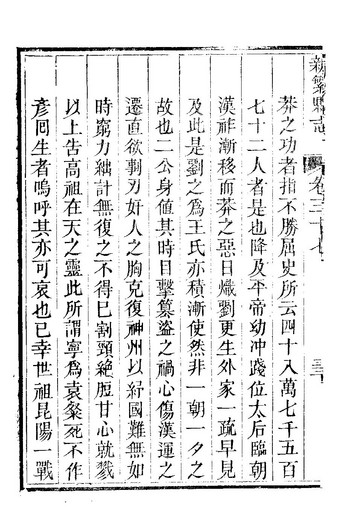 新繁縣志
卷三十七
莽之功者指不勝屈史所云四十八萬七千五百
七十二人者是也降及平帝幼冲踐位太后臨朝
漢祚漸移而莽之惡日熾劉更生外家一疏早見
及此是劉之爲王氏亦積漸使然非一朝一夕之
故也二公身值其時目擊篡盜之禍心傷漢運之
遷直欲剚刃奸人之胸克復神州以紓國難無如
時窮力絀計無復之不得已割頸絶脰甘心就戮
以上告高祖在天之靈此所謂寧爲袁粲死不作
彥回生者嗚呼其亦可哀也已幸世祖昆陽一戰